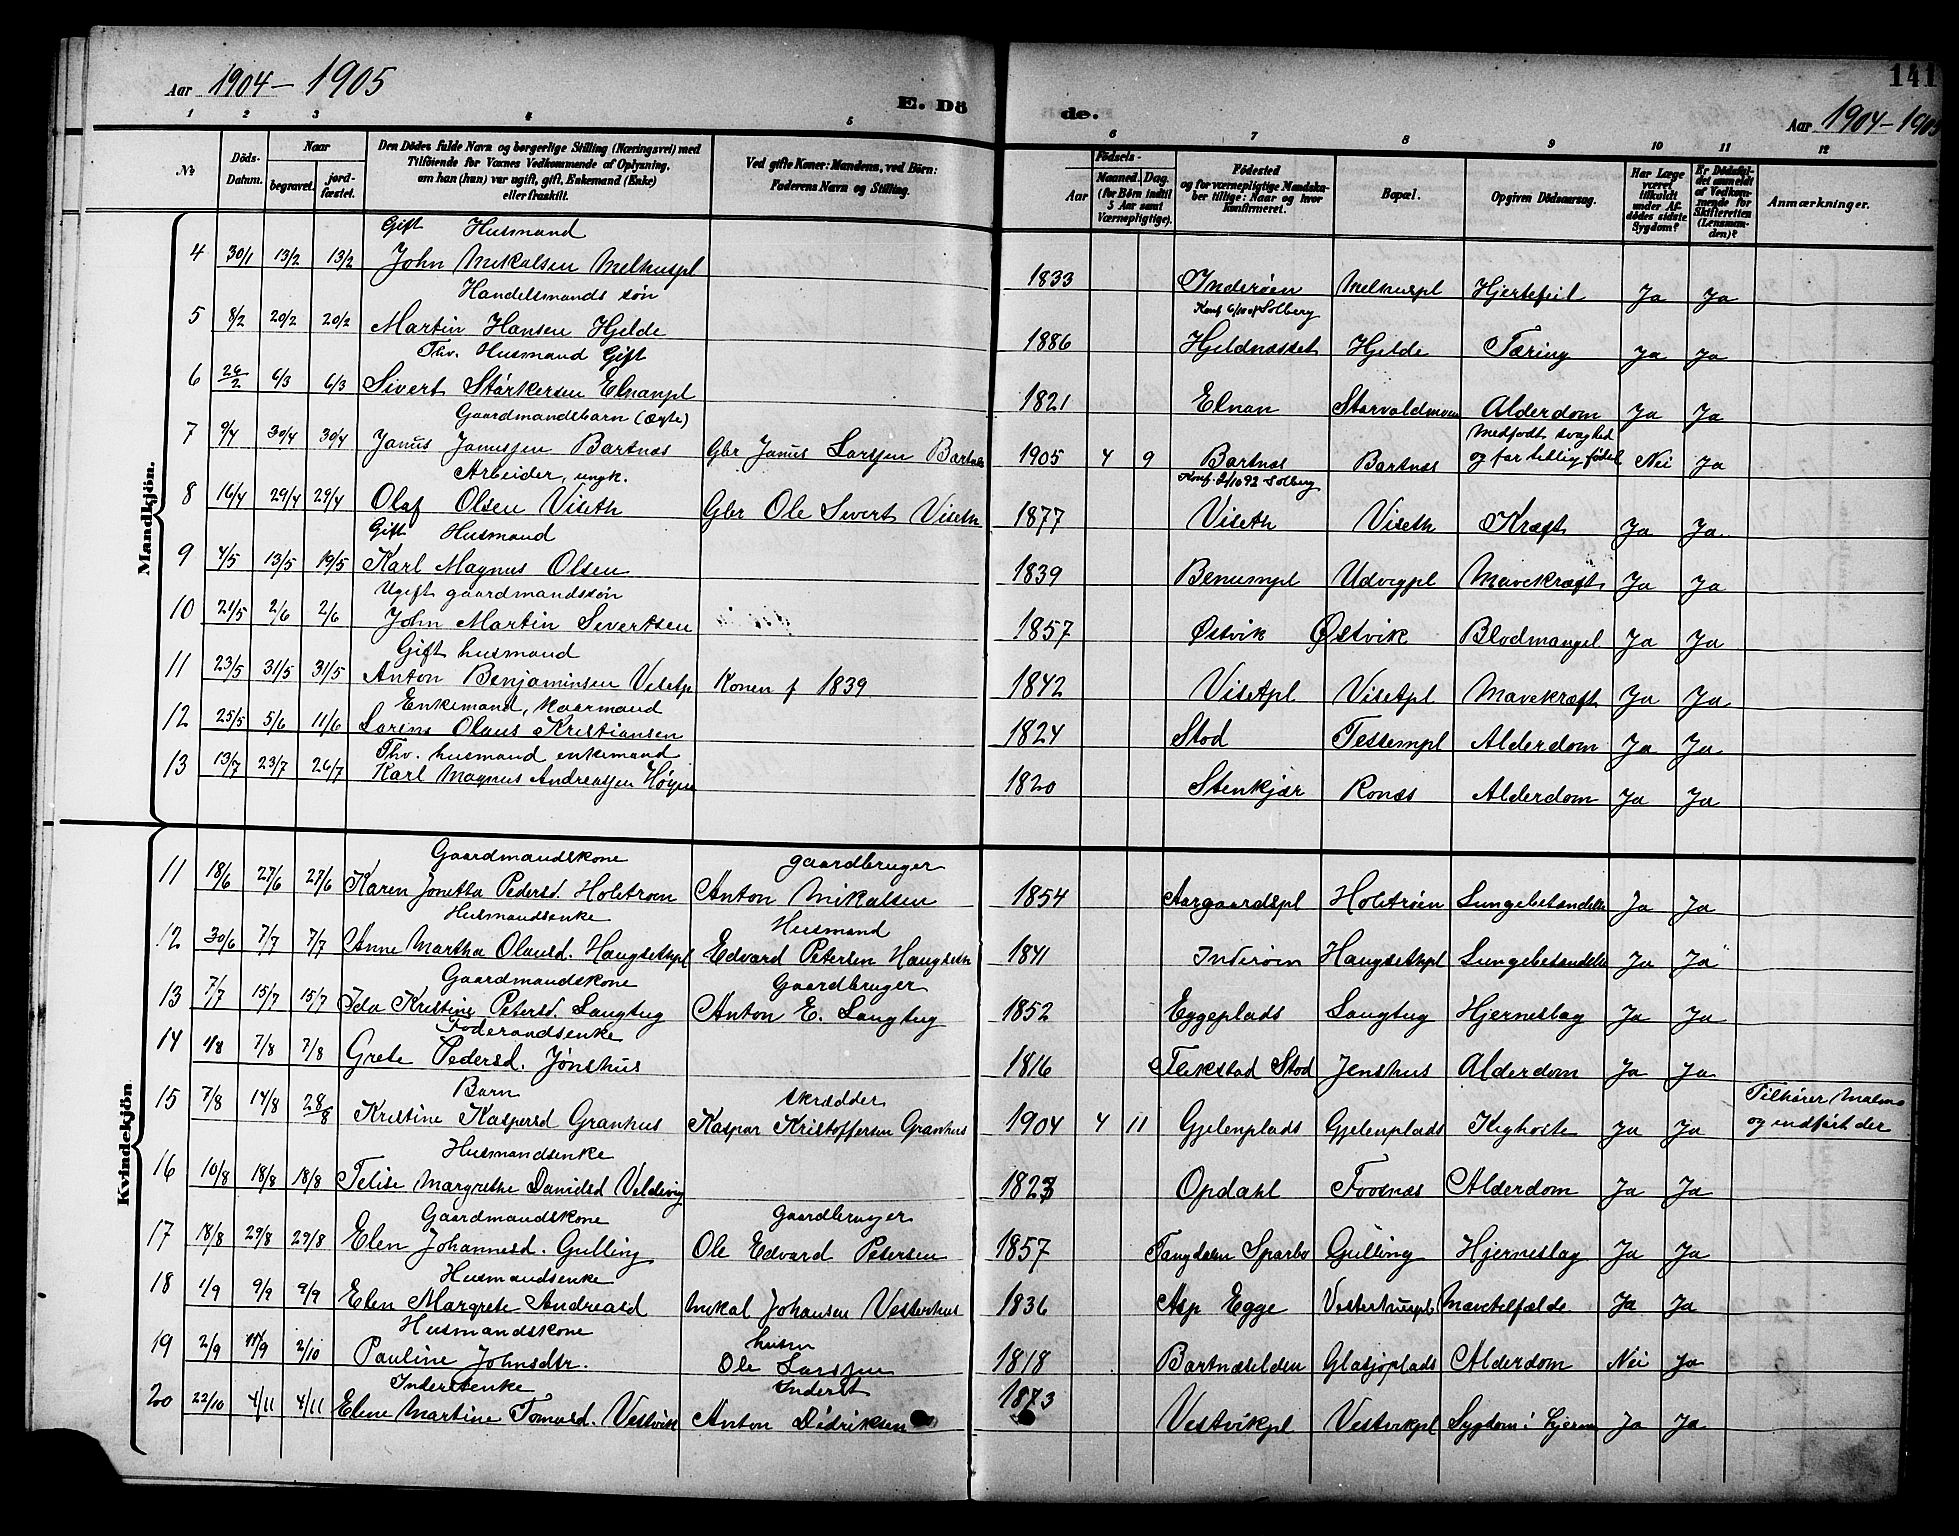 Aar 1904 - 1905
E. Dö
de.
141
Aar 1904 - 1905
1 2 3 4 5 6 7 8 9 10 11 12
No
Döds-Datum.
Naar
begravet.
jord-fæstet.
Den Dödes fulde Navn og borgerlige Stilling (Næringsvei) med
Tilföiende for Voxnes Vedkommende af Oplysning,
om han (hun) var ugift, gift, Enkemand (Enke)
eller fraskilt.
Ved gifte Koner: Mandens, ved Börn:
Faderens Navn og Stilling.
Födsels-
Aar
Maaned. Dag.
(for Börn indtil
5 Aar samt
Værnepligtige).
Födested
og for værnepligtige Mandska-
ber tillige: Naar og hvor
konfirmeret.
Bopæl.
Opgiven Dödsaarsag.
Har Læge
været
tilkaldt
under Af-
dödes sidste
Sygdom?
Er Dödsfal-
det anmeldt
af Vedkom-
mende for
Skifteretten
(Lensman-
den)?
Anmærkninger.
Mandkjön.
Gift Husmand
4 30/1 13/2 13/2 John Mikalsen Melhuspl 1833 Inderøen Melhuspl Hjertefeil Ja Ja
Handelsmands søn Konf 6/10 01 Solberg
5 8/2 20/2 20/2 Martin Hansen Hjelde 1886 Hjeldnesset Hjelde Tæring Ja Ja
Fhv. Husmand Gift
6 26/2 6/3 6/3 Sivert Størkersen Elnanpl 1821 Elnan Alderdom Ja Ja
Gaardmandsbarn (ægte) Medfødt svaghed
7 9/4 30/4 30/4 Janus Janussen Bartnes Gbr Janus Larssen Bartnes 1905 4 9 Bartnes Bartnes og for tidlig fødsel Nei Ja
Arbeider, ungk. Konf. 2/10 92 Solberg
8 16/4 29/4 29/4 Olaf Olsen Viseth Gbr Ole Sivert Viseth 1877 Viseth Viseth Kræft Ja Ja
Gift Husmand
9 4/5 13/5 19/5 Karl Magnus Olsen 1839 Benumpl Udvegpl Mavekræft Ja Ja
Ugift gaardmandssøn
10 21/5 2/6 2/6 John Martin Sivertsen 1857 Østvik Østvik Blodmangel Ja Ja
Gift husmand
11 23/5 31/5 31/5 Anton Benjaminsen Visetpl Konen f 1839 1842 Visetpl Visetpl Mavekræft Ja Ja
Enkemand, kaarmand
12 25/5 5/6 11/6 Lorens Olaus Kristiansen 1824 Stod Tessempl Alderdom Ja Ja
Fhv. husmand enkemand
13 13/7 23/7 26/7 Karl Magnus Andreassen 1820 Stenkjær Ronæs Alderdom Ja Ja
Kvindekjön
Gaardmandskone gaardbruger
11 18/6 27/6 27/6 Karen Jonetta Pedersd. Holstrøm Anton Mikalsen 1854 Aargaardspl Holstrøen Lungebetændelse Ja Ja
Husmandsenke Husmand
12 30/6 7/7 7/7 Anne Martha Olausd. Haugsethpl Edvard Petersen Haugseth 1841 Inderøen Haugsethpl Lungebetændelse Ja Ja
Gaardmandskone Gaardbruger
13 7/7 15/7 15/7 Ida Kristine Petersd. Langtug Anton E. Langtug 1852 Eggeplads Langtug Hjerneslag Ja Ja
Føderaadsenke
14 4/8 7/8 7/8 Grete Pedersd. Jønshus 1816 Stod Jenshus Alderdom Ja Ja
Barn skrædder Tilhører Malmo
15 7/8 14/8 28/8 Kristine Kaspersd Granhus Kaspar Kristoffersen Granhus 1904 4 11 Gjelenplads Gjelenplads Kighoste Ja Ja og indført der
Husmandsenke
16 10/8 18/8 18/8 Margrethe Danielsd 1823 Opdahl Fosnes Alderdom Ja Ja
Gaardmandskone Gaardbruger
17 18/8 29/8 29/8 Elen Johannesd. Gulling Ole Edvard Petersen 1857 Tangdalen Sparbo Gulling Hjerneslag Ja Ja
Husmandsenke
18 1/9 9/9 9/9 Elen Margrete Andreasd Mikal Johansen Vesterhus 1836 Asp Egge Vesterhuspl Mavetilfælde Ja Ja
Husmandskone husm
19 2/9 17/9 2/10 Pauline Johnsdtr. Ole Larssen 1818 Bartnæsilden Glasjøplads Alderdom Nei Ja
Inderstenke Inderst
20 22/10 4/11 4/11 Eline Martine Tomasd. Vestvik Anton Didriksen 1873 Vestvikpl Vestvikpl Sygdom i hjernen Ja Ja